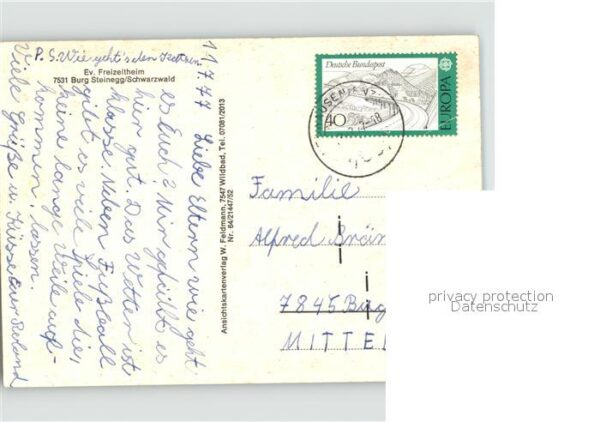 P. S. Wie geht's den
Ev. Freizeitheim
7531 Burg Steinegg/Schwarzwald
11.7.77 Liebe Eltern wie geht
es Euch? Mir gefällt es
hier gut. Das Wetter ist
klasse. Neben Fußball
gibt es viele Spiele die,
keine lange weile auf-
kommen, lassen.
Viele Grüße u. Küsse Eur Roland
Ansichtskartenverlag W. Feldmann, 7547 Wildbad, Tel. 07081/2013
Nr. 64/21447/52
Deutsche Bundespost
40
EUROPA
CEPT
Familie
Alfred
7845
MITTEL
privacy protection
Datenschutz